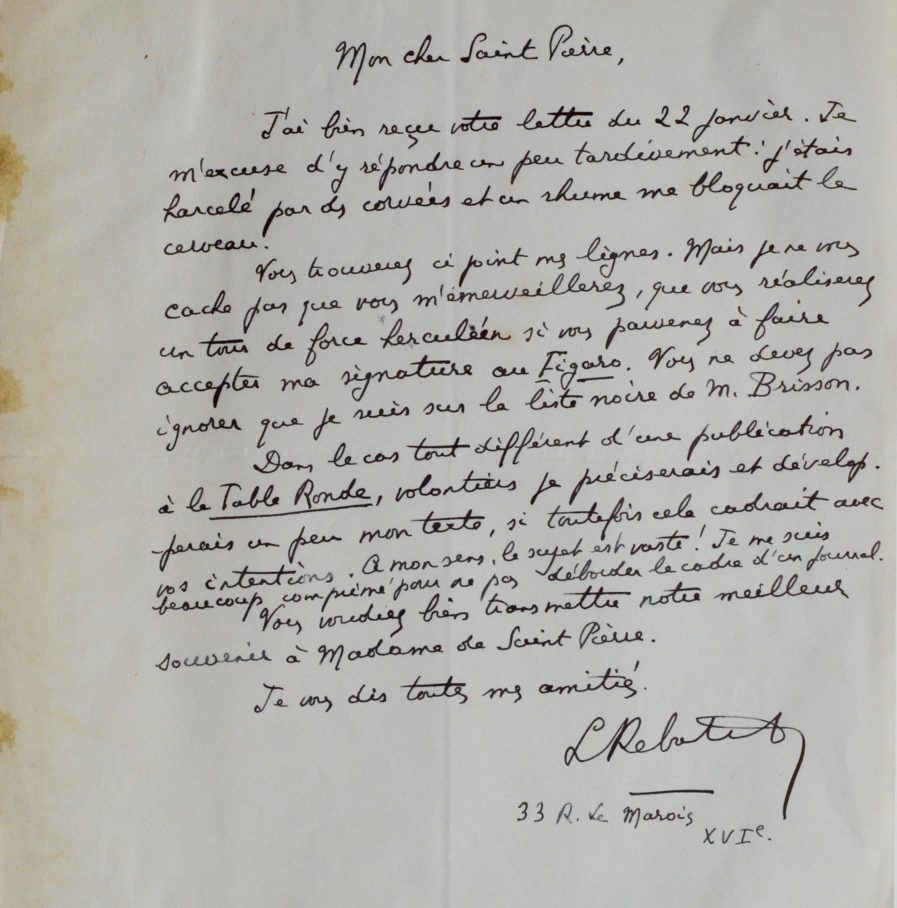 Mon cher Saint Pierre,
J'ai bien reçu votre lettre du 22 janvier. Je
m'excuse d'y répondre un peu tardivement : j'étais
harcelé par des corvées et un rhume me bloquait le
cerveau.
Vous trouverez ci joint mes lignes. Mais je ne vous
cache pas que vous m'émerveillerez, que vous réaliserez
un tour de force herculéen si vous parvenez à faire
accepter ma signature au Figaro. Vous ne devez pas
ignorer que je suis sur la liste noire de M. Brisson.
Dans le cas tout différent d'une publication
à la Table Ronde, volontiers je préciserais et dévelop-
perais un peu mon texte, si toutefois cela cadrait avec
vos intentions. A mon sens, le sujet est vaste ! Je me suis
beaucoup comprimé pour ne pas déborder le cadre d'un journal.
Vous voudrez bien transmettre notre meilleur
souvenir à Madame de Saint Pierre.
Je vous dis toutes mes amitiés.
L Rebatet
33 R. Le Marois
XVIe.